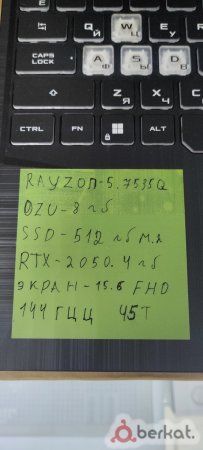 Q Й W Ц
CAPS LOCK A Ф S Ы D В
Z Я X Ч
CTRL FN ALT
RAYZOП-5.7535Q
ОZU-8 гб
SSD-512 гб М.2
RTX-2050.4 гб
экран-15.6 FHD
144 ГЦЦ 45Т
berkat.